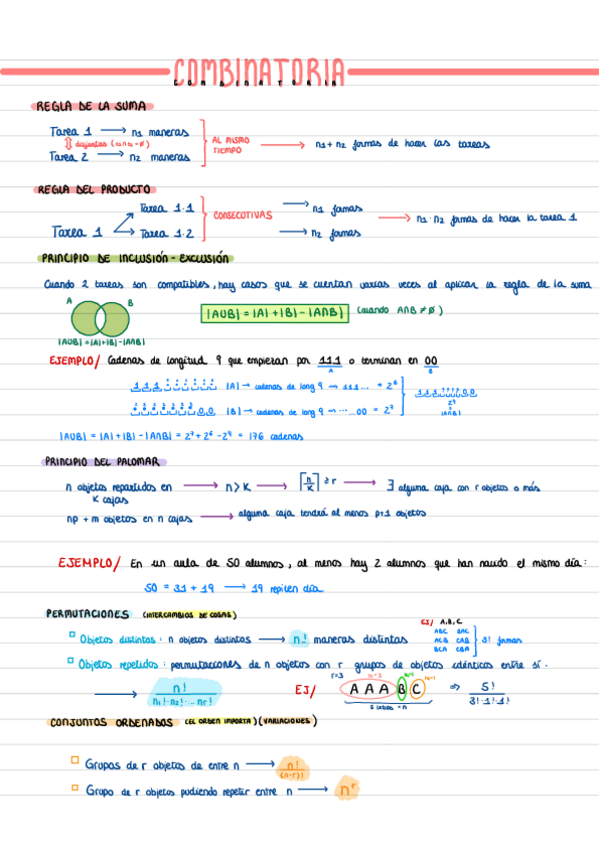 COMBINATORIA
REGLA DE LA SUMA
Tarea 1 ⟶ n1 maneras
disjuntas
Tarea 2 ⟶ n2 maneras
AL MISMO TIEMPO ⟶ n1 + n2 formas de hacer las tareas
REGLA DEL PRODUCTO
Tarea 1
Tarea 1.1
Tarea 1.2
CONSECUTIVAS
⟶ n1 formas
⟶ n2 formas
⟶ n1 · n2 formas de hacer la tarea 1
PRINCIPIO DE INCLUSIÓN - EXCLUSIÓN
Cuando 2 tareas son compatibles, hay casos que se cuentan varias veces al aplicar la regla de la suma
A B
|AUB| = |A|+|B|-|A∩B|
|AUB| = |A|+|B|-|A∩B| (cuando A∩B ≠ ∅)
EJEMPLO/ Cadenas de longitud 9 que empiezan por 111 o terminan en 00
A B
|A| → cadenas de long 9 → 111... = 2⁶
|B| → cadenas de long 9 → ...00 = 2⁷
2⁴
|A∩B|
|AUB| = |A|+|B|-|A∩B| = 2⁷+2⁶-2⁴ = 176 cadenas
PRINCIPIO DEL PALOMAR
n objetos repartidos en K cajas ⟶ n > K ⟶ ⌈n/K⌉ ≥ r ⟶ ∃ alguna caja con r objetos o más
np + m objetos en n cajas ⟶ alguna caja tendrá al menos p+1 objetos
EJEMPLO/ En un aula de 50 alumnos, al menos hay 2 alumnos que han nacido el mismo día:
50 = 31 + 19 ⟶ 19 repiten día
PERMUTACIONES (INTERCAMBIOS DE COSAS)
Objetos distintos: n objetos distintos ⟶ n! maneras distintas
EJ/ A,B,C
ABC BAC
ACB CAB
BCA CBA
3! formas
Objetos repetidos: permutaciones de n objetos con r grupos de objetos idénticos entre sí.
⟶ n! / n1! · n2! · ... nr!
EJ/ A A A B C ⇒ 5! / 3! · 1! · 1!
r=3
CONJUNTOS ORDENADOS (EL ORDEN IMPORTA) (VARIACIONES)
Grupos de r objetos de entre n ⟶ n! / (n-r)!
Grupo de r objetos pudiendo repetir entre n ⟶ nʳ